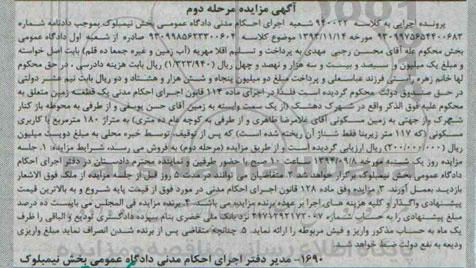 آگهی مزایده مرحله دوم
پرونده اجرایی به کلاسه ۹۴۰۰۲۲ شعبه اجرای احکام مدنی دادگاه عمومی بخش نیمبلوک بموجب دادنامه شماره
۹۳۰۹۹۷۵۶۵۴۴۰۰۶۸۳ مورخه ۱۳۹۳/۱۱/۱۴ صادره از شعبه اول دادگاه عمومی
بخش محکوم علیه آقای محسن رجبی مهدی به پرداخت و تسلیم اقلام مهریه (آب زمین و غیره جمعا ده قلم) بابت اصل خواسته
و مبلغ یک میلیون و سیصد و بیست و سه هزار و نهصد و چهل ریال (۱/۳۲۳/۹۴۰) ریال بابت هزینه دادرسی، در حق محکوم
لها خانم زهره راستی فرزند عباسعلی و پرداخت مبلغ دو میلیون پنجاه و شش هزار و هشتاد و دو ریال بابت نیم عشر دولتی
در حق صندوق دولت محکوم گردیده است فلذا در اجرای ماده ۱۱۴ قانون اجرای احکام مدنی یک قطعه زمین متعلق به
محکوم علیه فوق الذکر واقع در شهرک دهشک (از یک سمت وابسته به زمین آقای حسن یوسفی و از طرفی به محوطه باز کنار
شهرک و از جهتی به زمین مسکونی آقای غلامرضا طاهری و از طرفی به کوچه عام ده متری) به متراژ ۱۸۰ مترمربع با کاربری
مسکونی (که ۱۱۷ متر زیربنا فقط شناژ آن ریخته شده است) که پس از توقیف و توسط خبره محلی به مبلغ دویست میلیون
(۲۰۰/۰۰۰/۰۰۰) ریال ارزیابی گردیده است و از طریق مزایده (مرحله دوم) به فروش می رسد، شرایط مزایده: ۱. جلسه
مزایده روز یک شنبه مورخه ۱۳۹۴/۰۹/۸ ساعت ۱۰ صبح با حضور طرفین و نماینده محترم دادستان در دفتر اجرای احکام
دادگاه عمومی بخش نیمبلوک برگزار خواهد شد ۲. متقاضیان می توانند در مدت ۵ روز قبل از جلسه مزایده از ملک فوق الاشعار
بازدید بعمل آورند ۳. مزایده وفق ماده ۱۲۸ قانون اجرای احکام مدنی در مورد فوق از قیمت پایه شروع و به بالاترین قیمت
پیشنهادی واگذار و کلیه هزینه های اجرا بر عهده برنده مزایده می باشد ۴. برنده مزایده فی المجلس می بایست ده درصد
مبلغ پیشنهادی را به حساب شماره نزد بانک ملی خضری بنام سپرده دادگستری تودیع و الباقی را ظرف
یک ماه به حساب مذکور واریز و فیش مربوطه را ارائه نماید. ۵. چنانچه متقاضی پس از برنده شدن انصراف نماید مبلغ واریزی
ودیعه به نفع دولت ضبط خواهد شد.
۱۶۹۰- مدیر دفتر اجرای احکام مدنی دادگاه عمومی بخش نیمبلوک